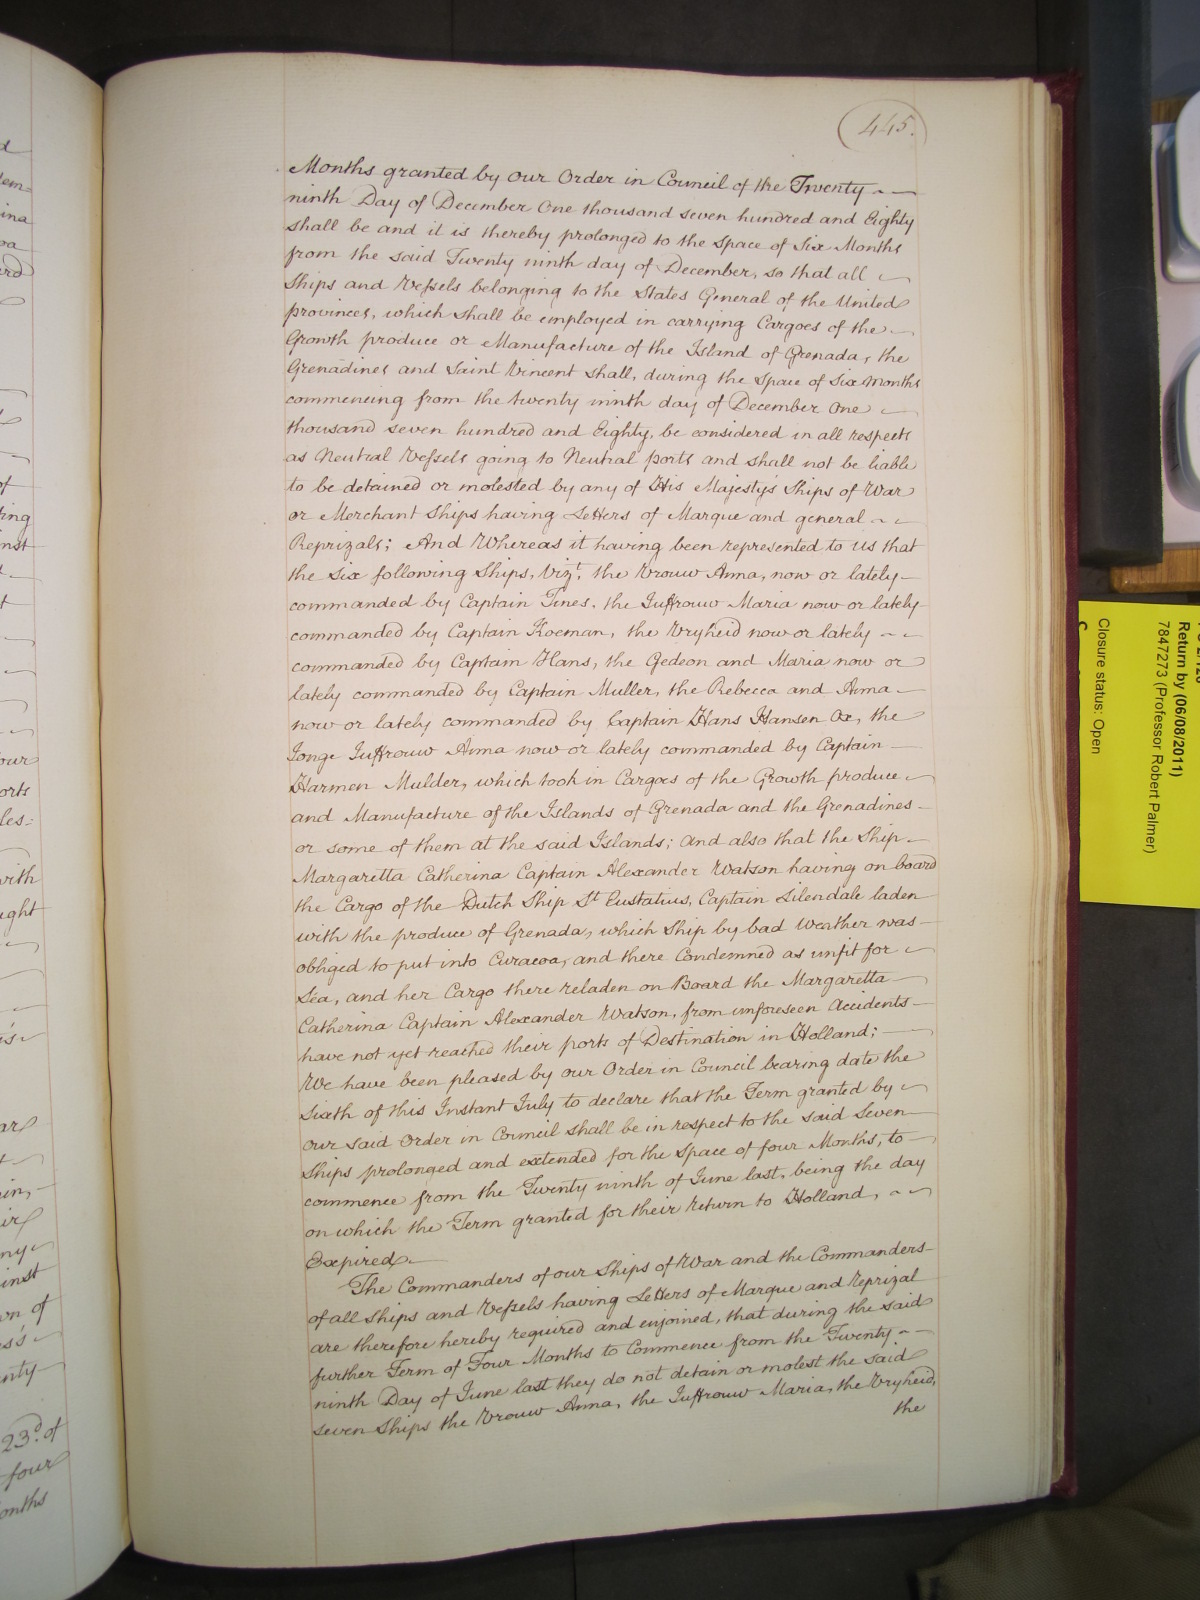 445.
Months granted by our Order in Council of the Twenty
ninth Day of December One thousand seven hundred and Eighty
shall be and it is thereby prolonged to the space of Six Months
from the said Twenty ninth day of December, so that all
Ships and Vessels belonging to the States General of the United
provinces, which shall be employed in carrying Cargoes of the
Growth produce or Manufacture of the Island of Grenada, the
Grenadines and Saint Vincent shall, during the space of Six Months
commencing from the twenty ninth day of December One
thousand seven hundred and Eighty, be considered in all respects
as Neutral Vessels going to Neutral ports and shall not be liable
to be detained or molested by any of His Majesty's Ships of War
or Merchant Ships having Letters of Marque and general
Reprizals; And Whereas it having been represented to us that
the Six following Ships, Vizt. the Vrouw Anna, now or lately
commanded by Captain Tines, the Juffrouw Maria now or lately
commanded by Captain Koeman, the Vryheid now or lately
commanded by Captain Hans, the Gedeon and Maria now or
lately commanded by Captain Muller, the Rebecca and Anna
now or lately commanded by Captain Hans Hansen Ox, the
Jonge Juffrouw Anna now or lately commanded by Captain
Harmen Mulder, which took in Cargoes of the Growth produce
and Manufacture of the Islands of Grenada and the Grenadines
or some of them at the said Islands; and also that the Ship
Margaretta Catherina Captain Alexander Watson having on board
the Cargo of the Dutch Ship St Eustatius, Captain Silendale laden
with the produce of Grenada, which Ship by bad Weather was
obliged to put into Curacoa, and there Condemned as unfit for
Sea, and her Cargo there reladen on Board the Margaretta
Catherina Captain Alexander Watson, from unforeseen Accidents
have not yet reached their ports of Destination in Holland;
We have been pleased by our Order in Council bearing date the
Sixth of this Instant July to declare that the Term granted by
our said Order in Council shall be in respect to the said Seven
Ships prolonged and extended for the Space of four Months, to
commence from the Twenty ninth of June last, being the day
on which the Term granted for their return to Holland,
Expired.
The Commanders of our Ships of War and the Commanders
of all Ships and Vessels having Letters of Marque and Reprizal
are therefore hereby required and enjoined, that during the said
further Term of Four Months to Commence from the Twenty
ninth Day of June last they do not detain or molest the said
seven Ships the Vrouw Anna, the Juffrouw Maria, the Vryheid,
the
23d. of
four
Return by (06/08/2011)
7847273 (Professor Robert Palmer)
Closure status: Open